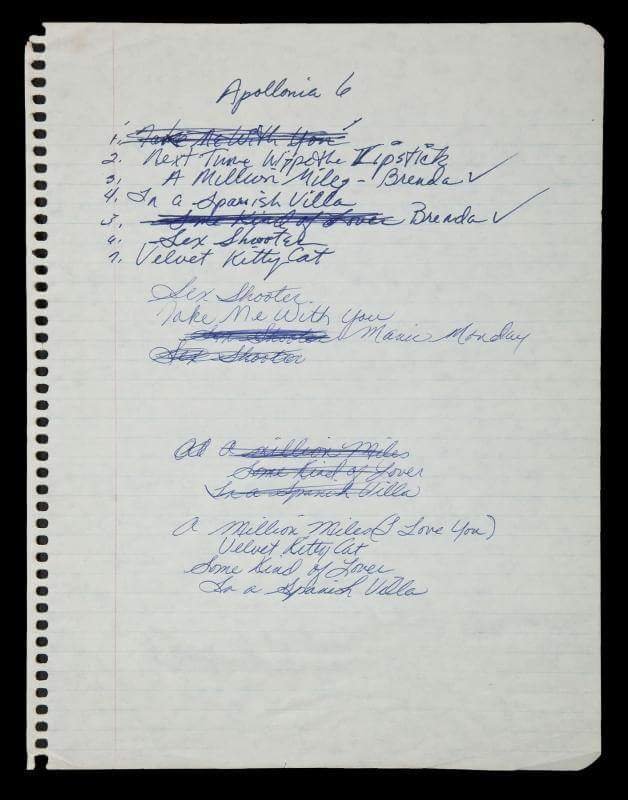 Apollonia 6
1. Take Me With You
2. Next Time Wipe the Lipstick
3. A Million Miles - Brenda ✓
4. In a Spanish Villa
5. Some Kind of Lover Brenda ✓
6. Sex Shooter
7. Velvet Kitty Cat
Sex Shooter
Take Me With You
Sex Shooter Manic Monday
Sex Shooter
A million Miles
Some Kind of Lover
In a Spanish Villa
A Million Miles (I Love You)
Velvet Kitty Cat
Some Kind of Lover
In a Spanish Villa